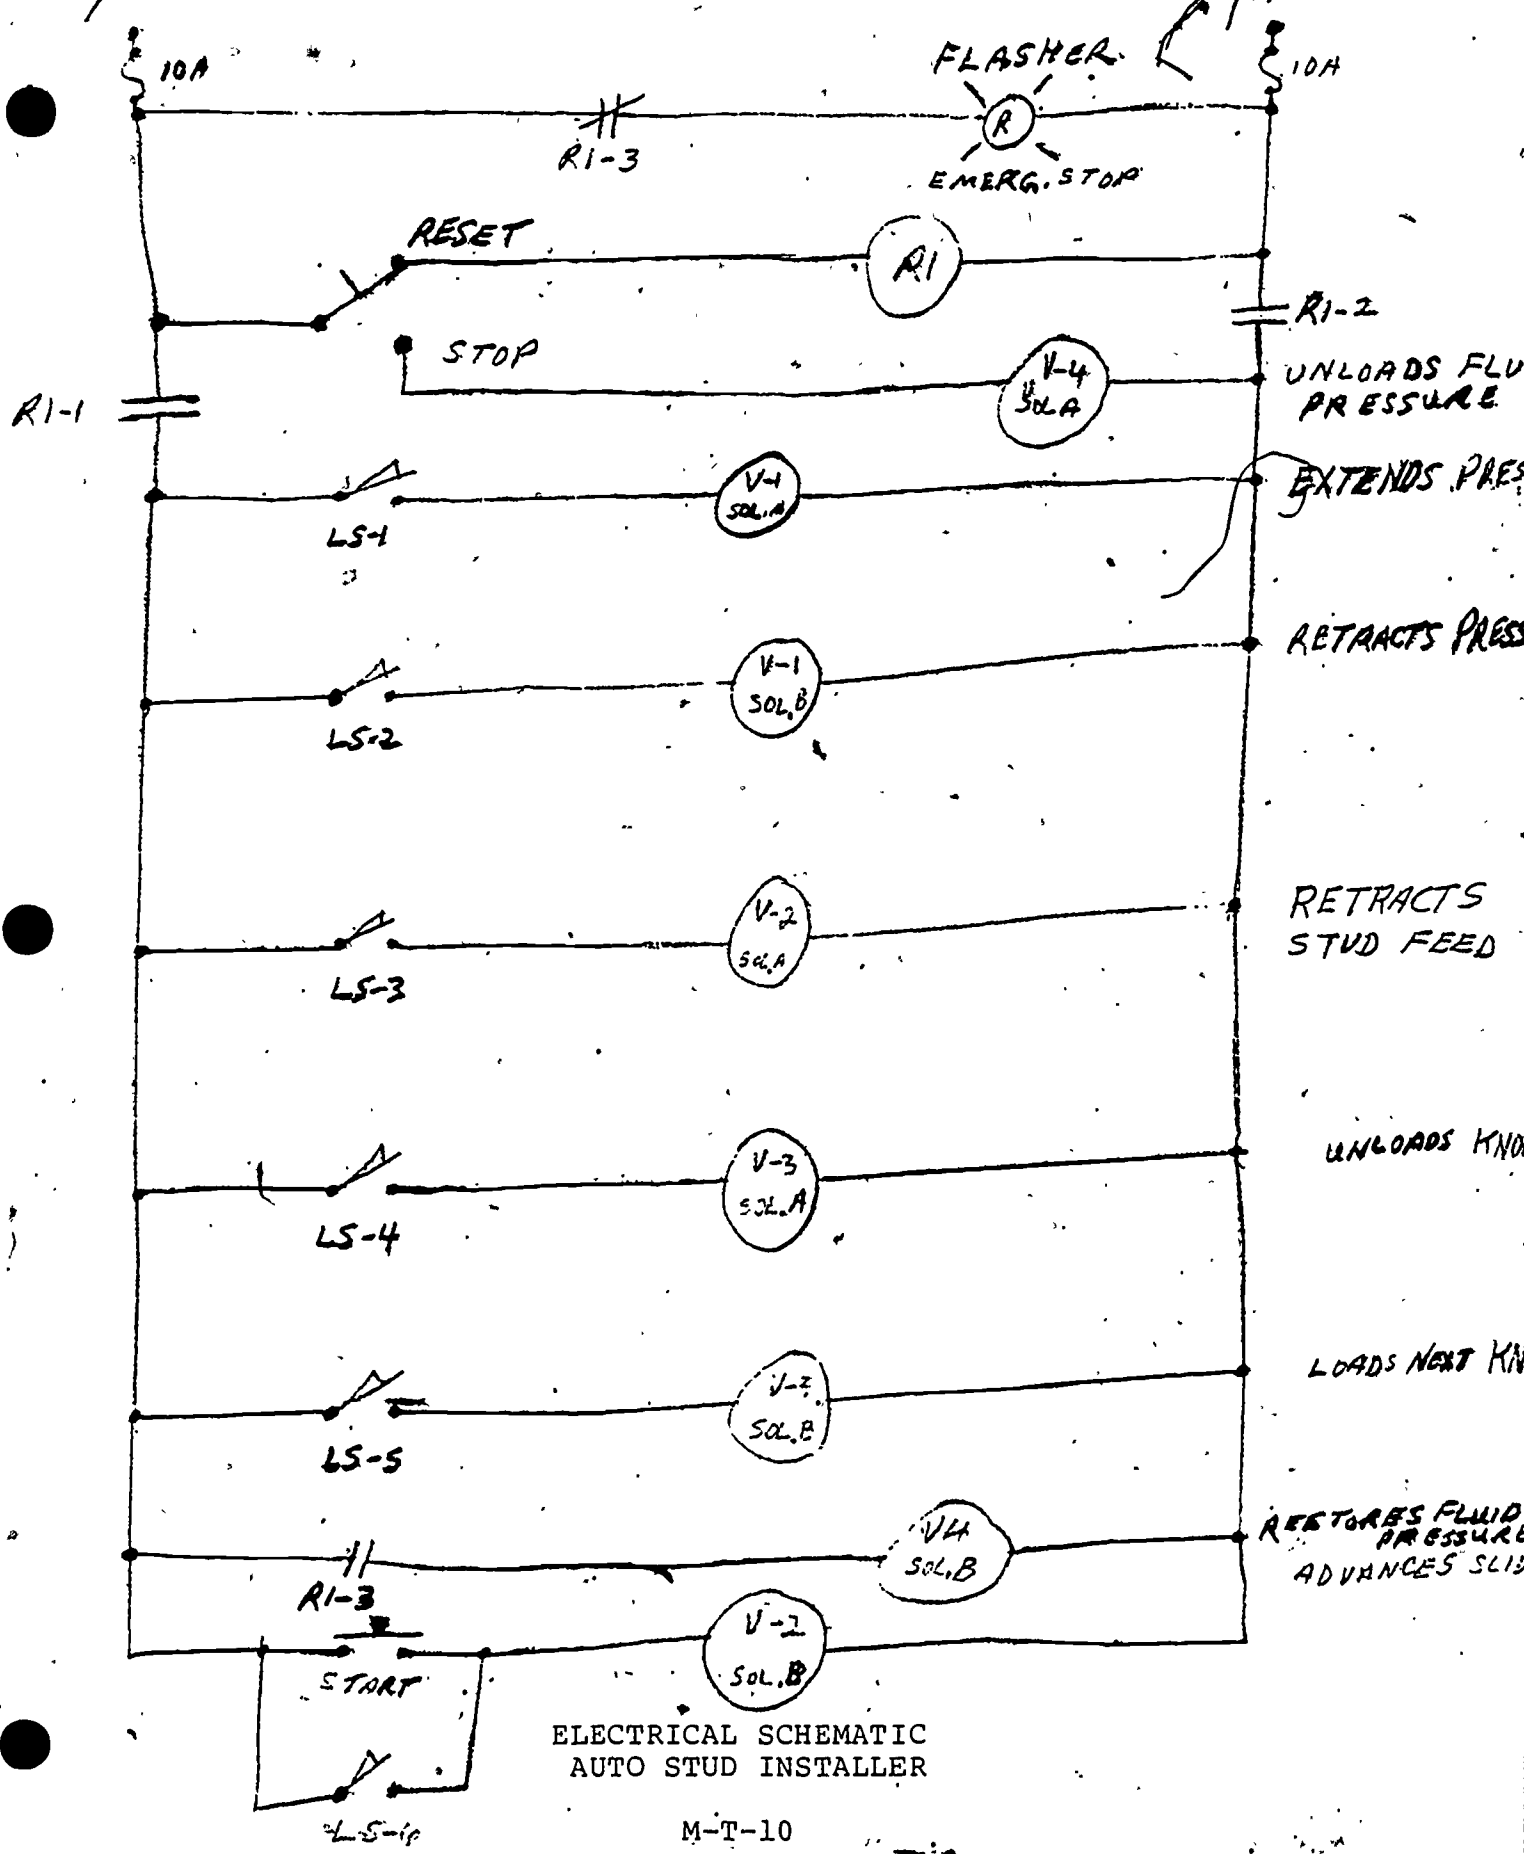 10A
FLASHER
10A
R
R1-3
EMERG. STOP
RESET
R1
R1-2
STOP
V-4
SOL A
UNLOADS FLU
PRESSURE
R1-1
V-1
SOL. A
EXTENDS PRES
LS-1
RETRACTS PRESS
V-1
SOL. B
LS-2
V-2
SOL. A
RETRACTS
STUD FEED
LS-3
V-3
SOL. A
UNLOADS KNO
LS-4
LOADS NEXT KN
V-2
SOL. B
LS-5
V4
SOL. B
RESTORES FLUID
PRESSURE
ADVANCES SLID
R1-3
V-2
SOL. B
START
ELECTRICAL SCHEMATIC
AUTO STUD INSTALLER
M-T-10